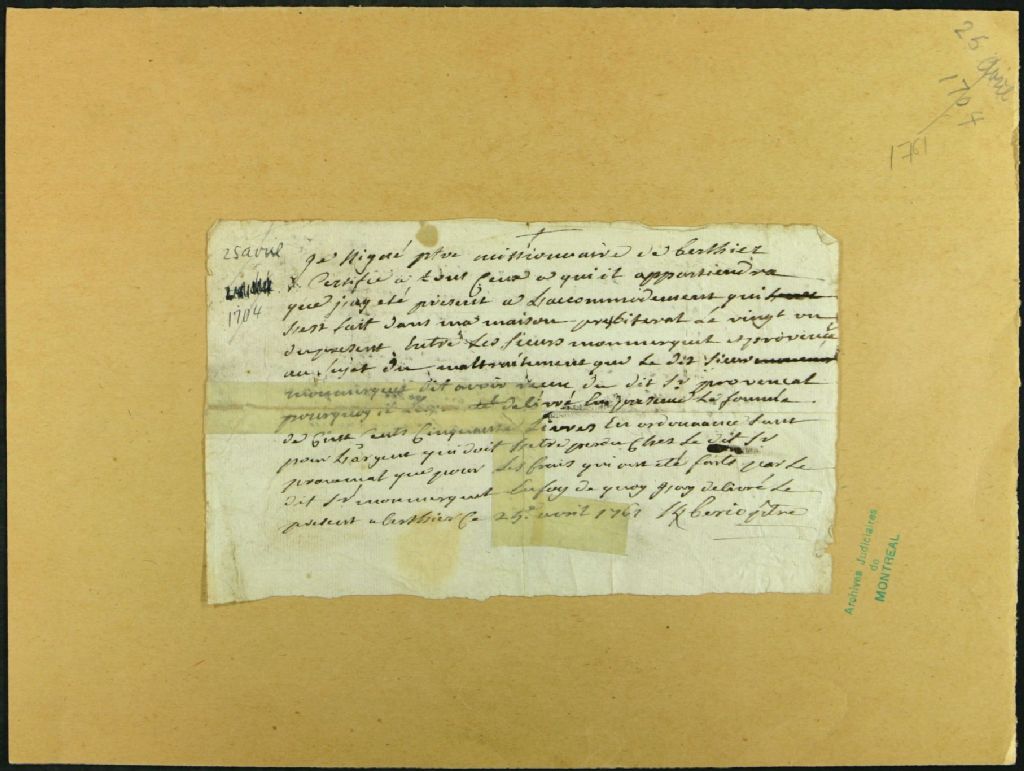 25 avril
1704
1761
25 avril
1704
je signé ptre missionnaire de berthier
Certifie a tous Ceux a qui il appartiendra
que j'ay été présent a L'accommodement qui
s'est fait dans ma maison presbiterat de vingt un
du present Entre Les sieurs monmerquet et provencal
au sujet du maltraitement que Le dit sieur
monmerquet dit avoir receu du dit Sr provencal
pourquoy il delivré La somme
de Cent Cinquante Livres En ordonnance tant
pour L'argent qui doit s'etre perdu Chez Le dit Sr
provencal que pour Les frais qui ont été faits par Le
dit Sr monmerquet En foy de quoy j'ay delivré Le
présent a berthier Ce 25e avril 1761 ptre
Archives Judiciaires
de
MONTREAL